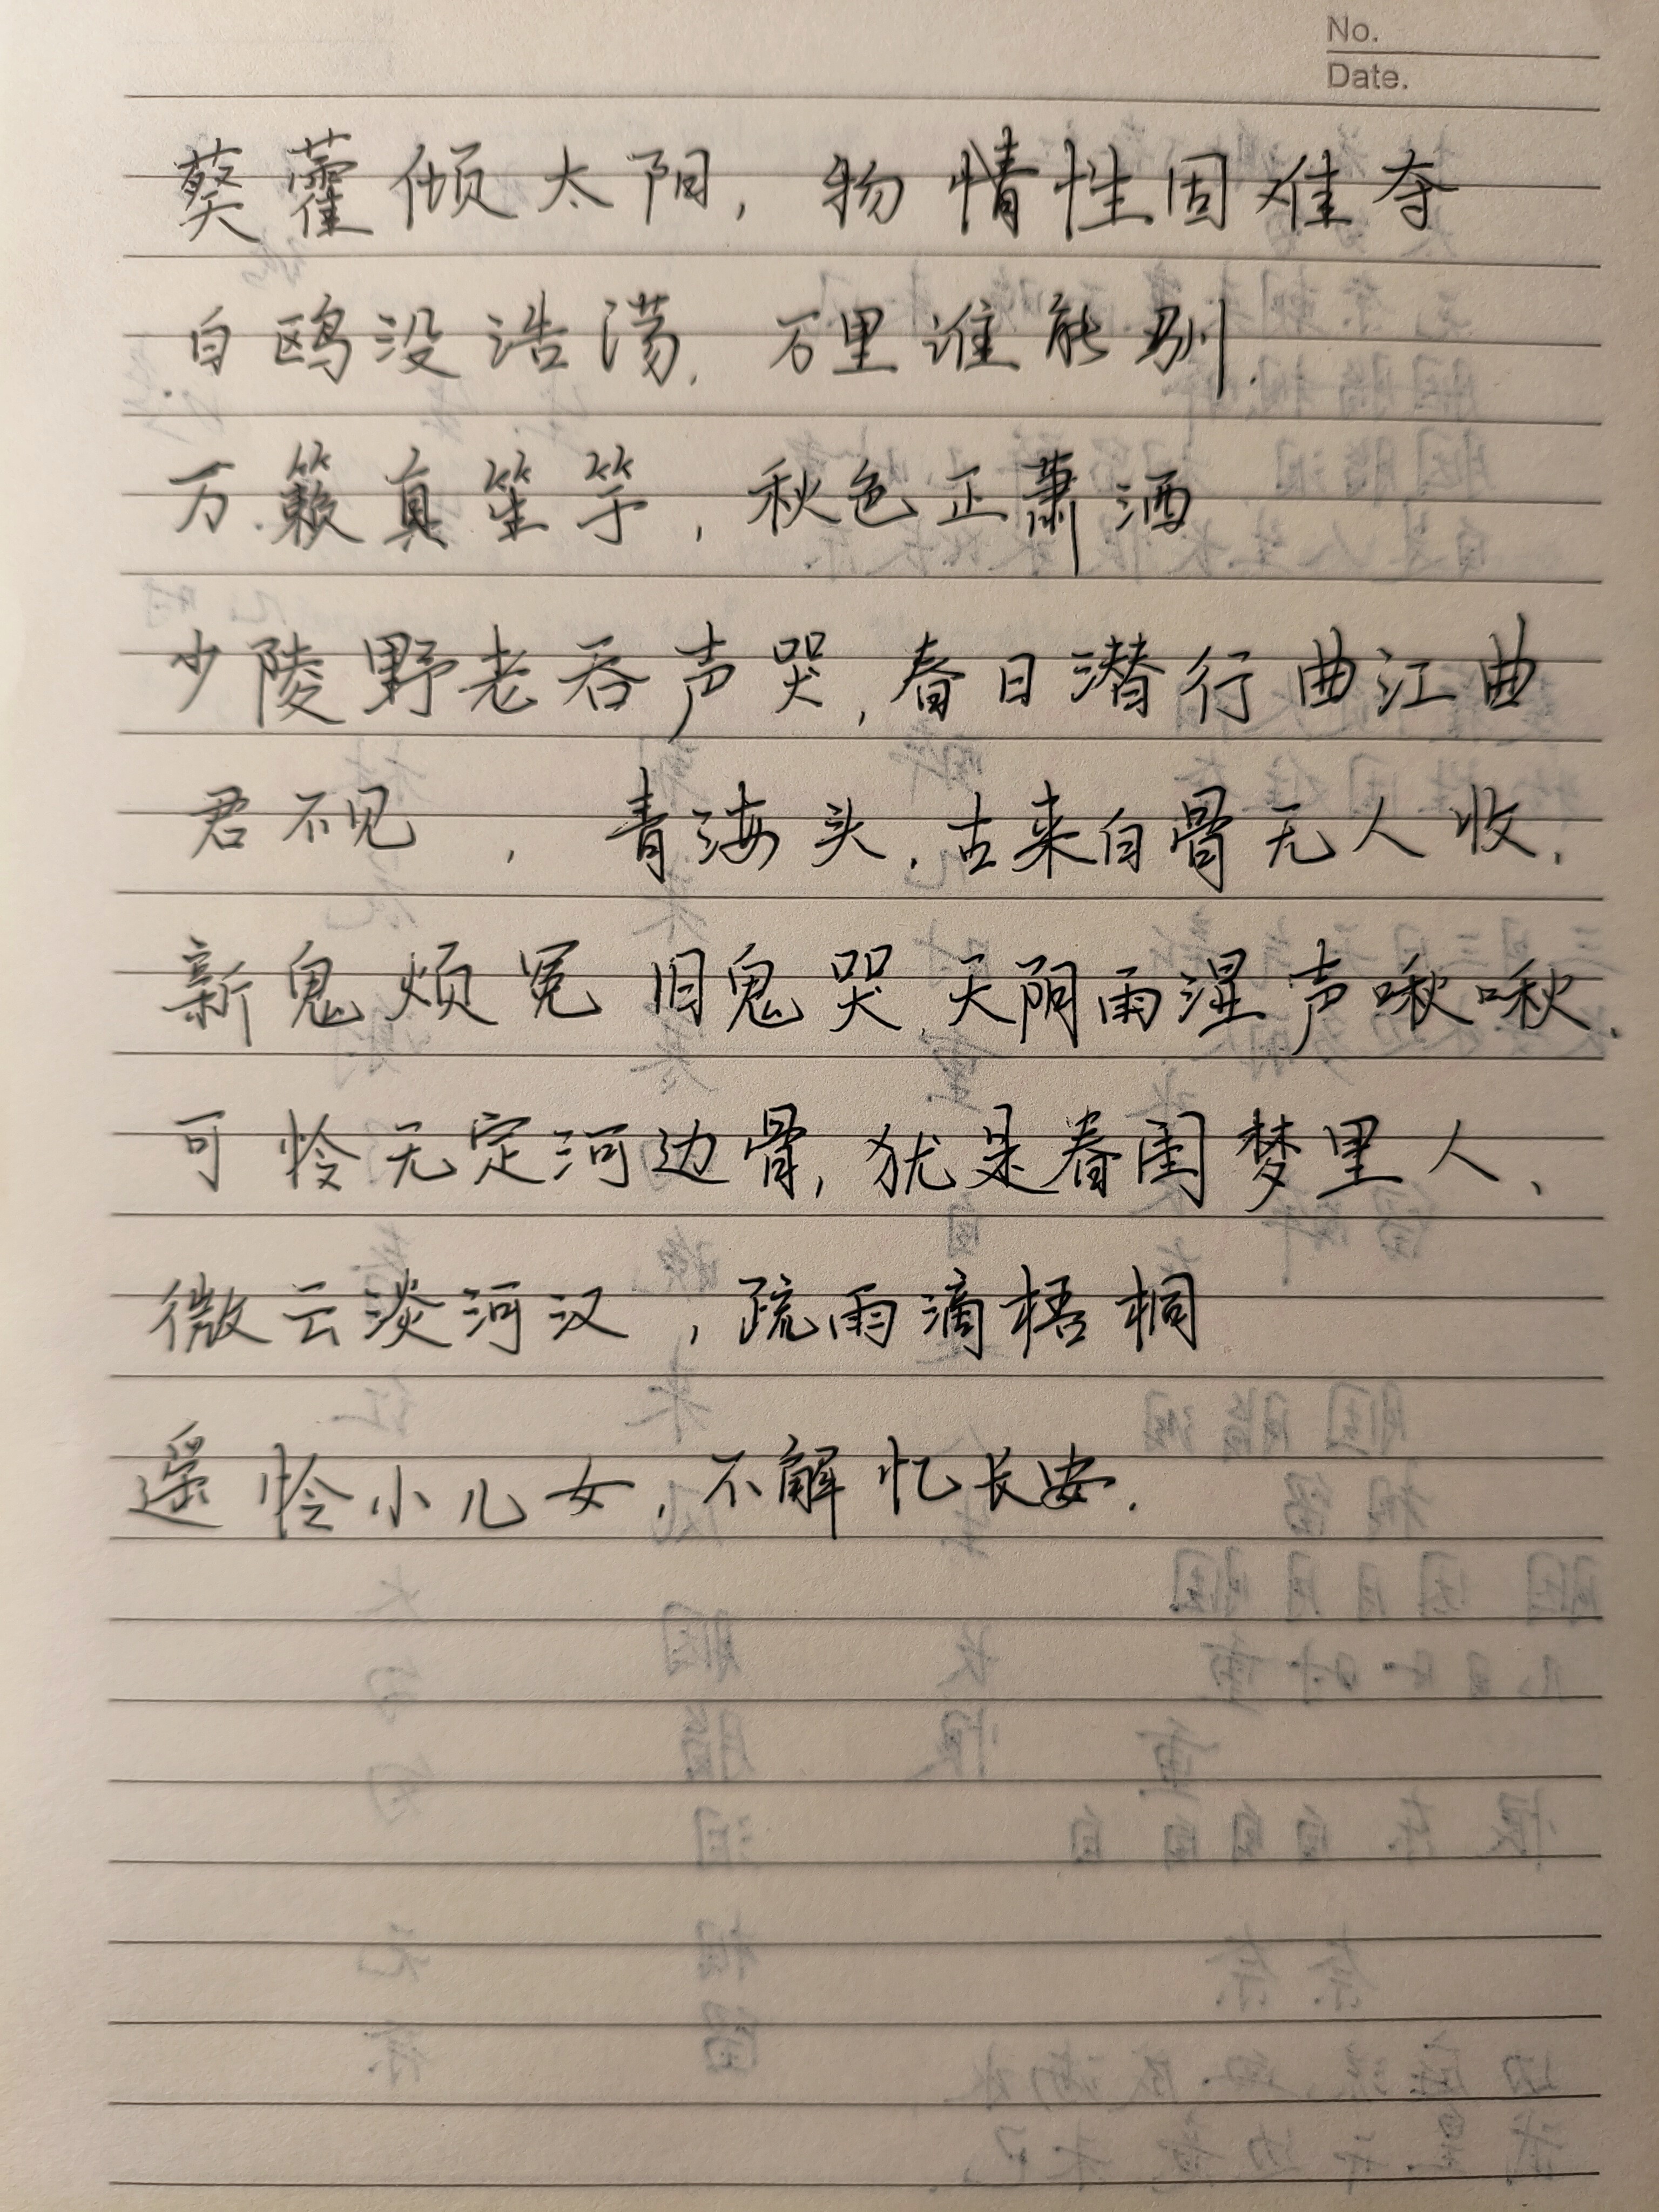 No.
Date.
葵藿倾太阳，物情性固难夺
白鸥没浩荡，万里谁能驯．
万籁真笙竽，秋色正萧洒
少陵野老吞声哭，春日潜行曲江曲
君不见，青海头，古来白骨无人收，
新鬼烦冤旧鬼哭，天阴雨湿声啾啾．
可怜无定河边骨，犹是春闺梦里人、
微云淡河汉，疏雨滴梧桐
遥怜小儿女，不解忆长安．